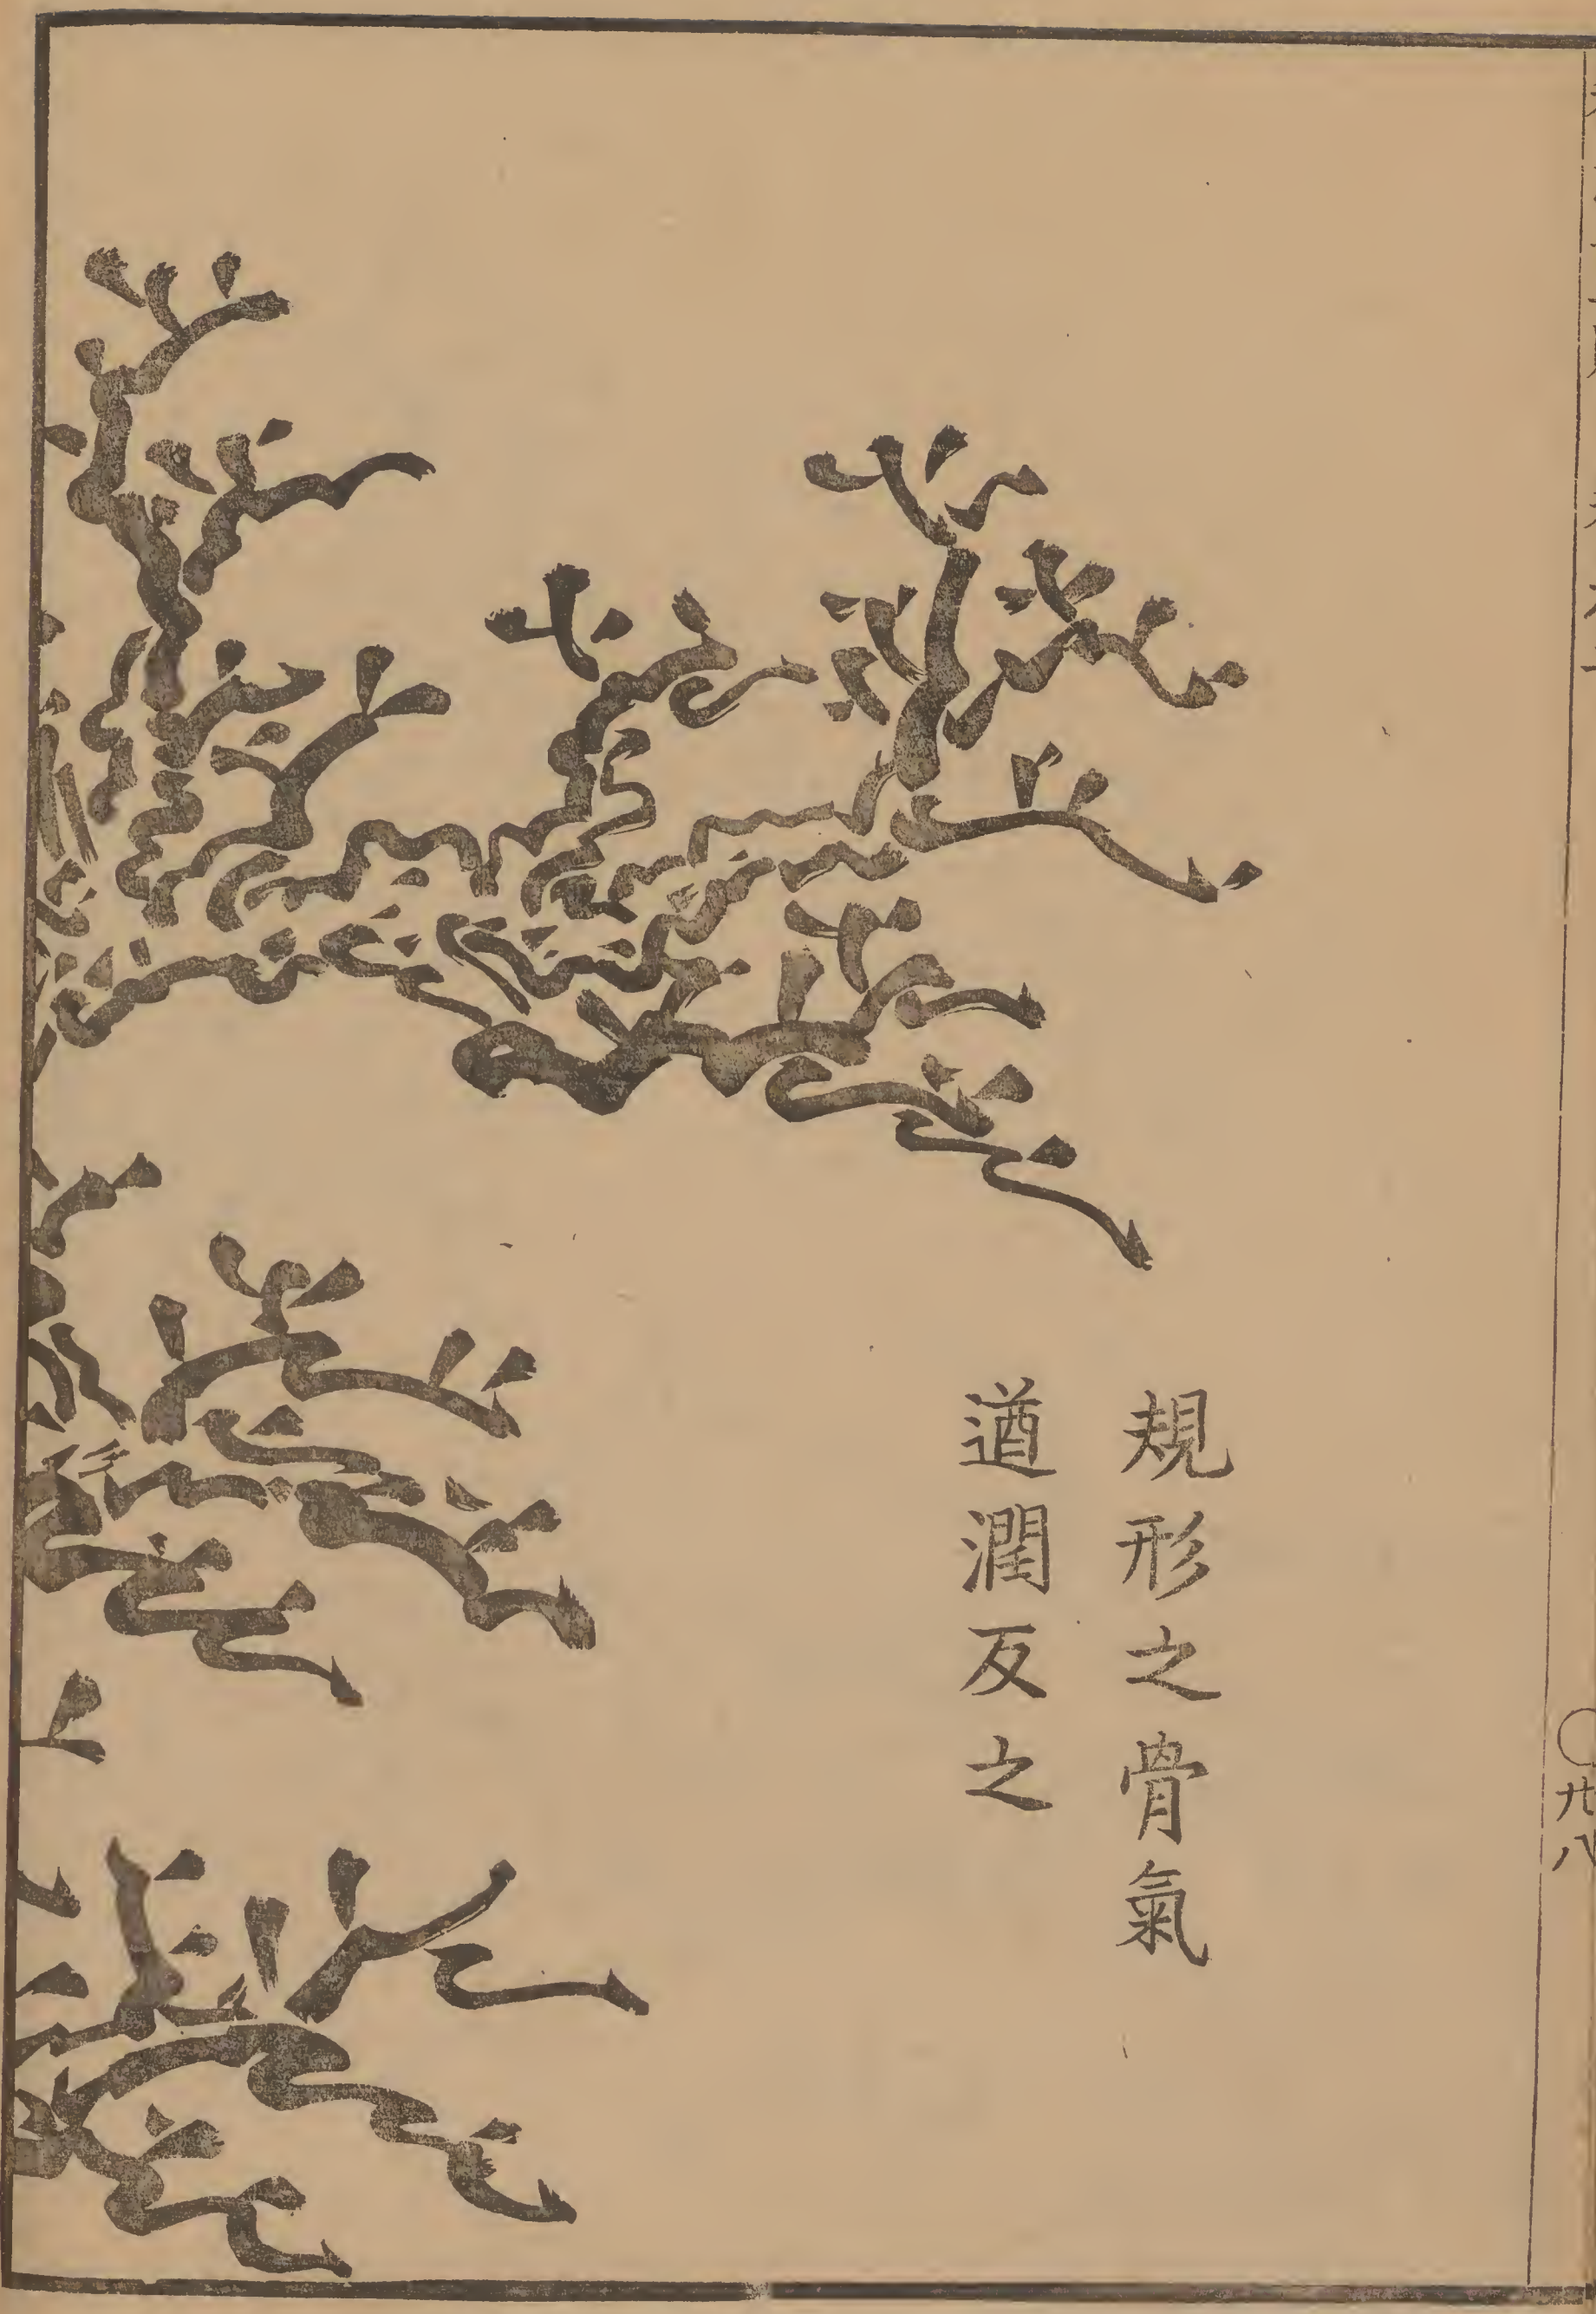 規形之骨氣
遒潤反之
〇廿八